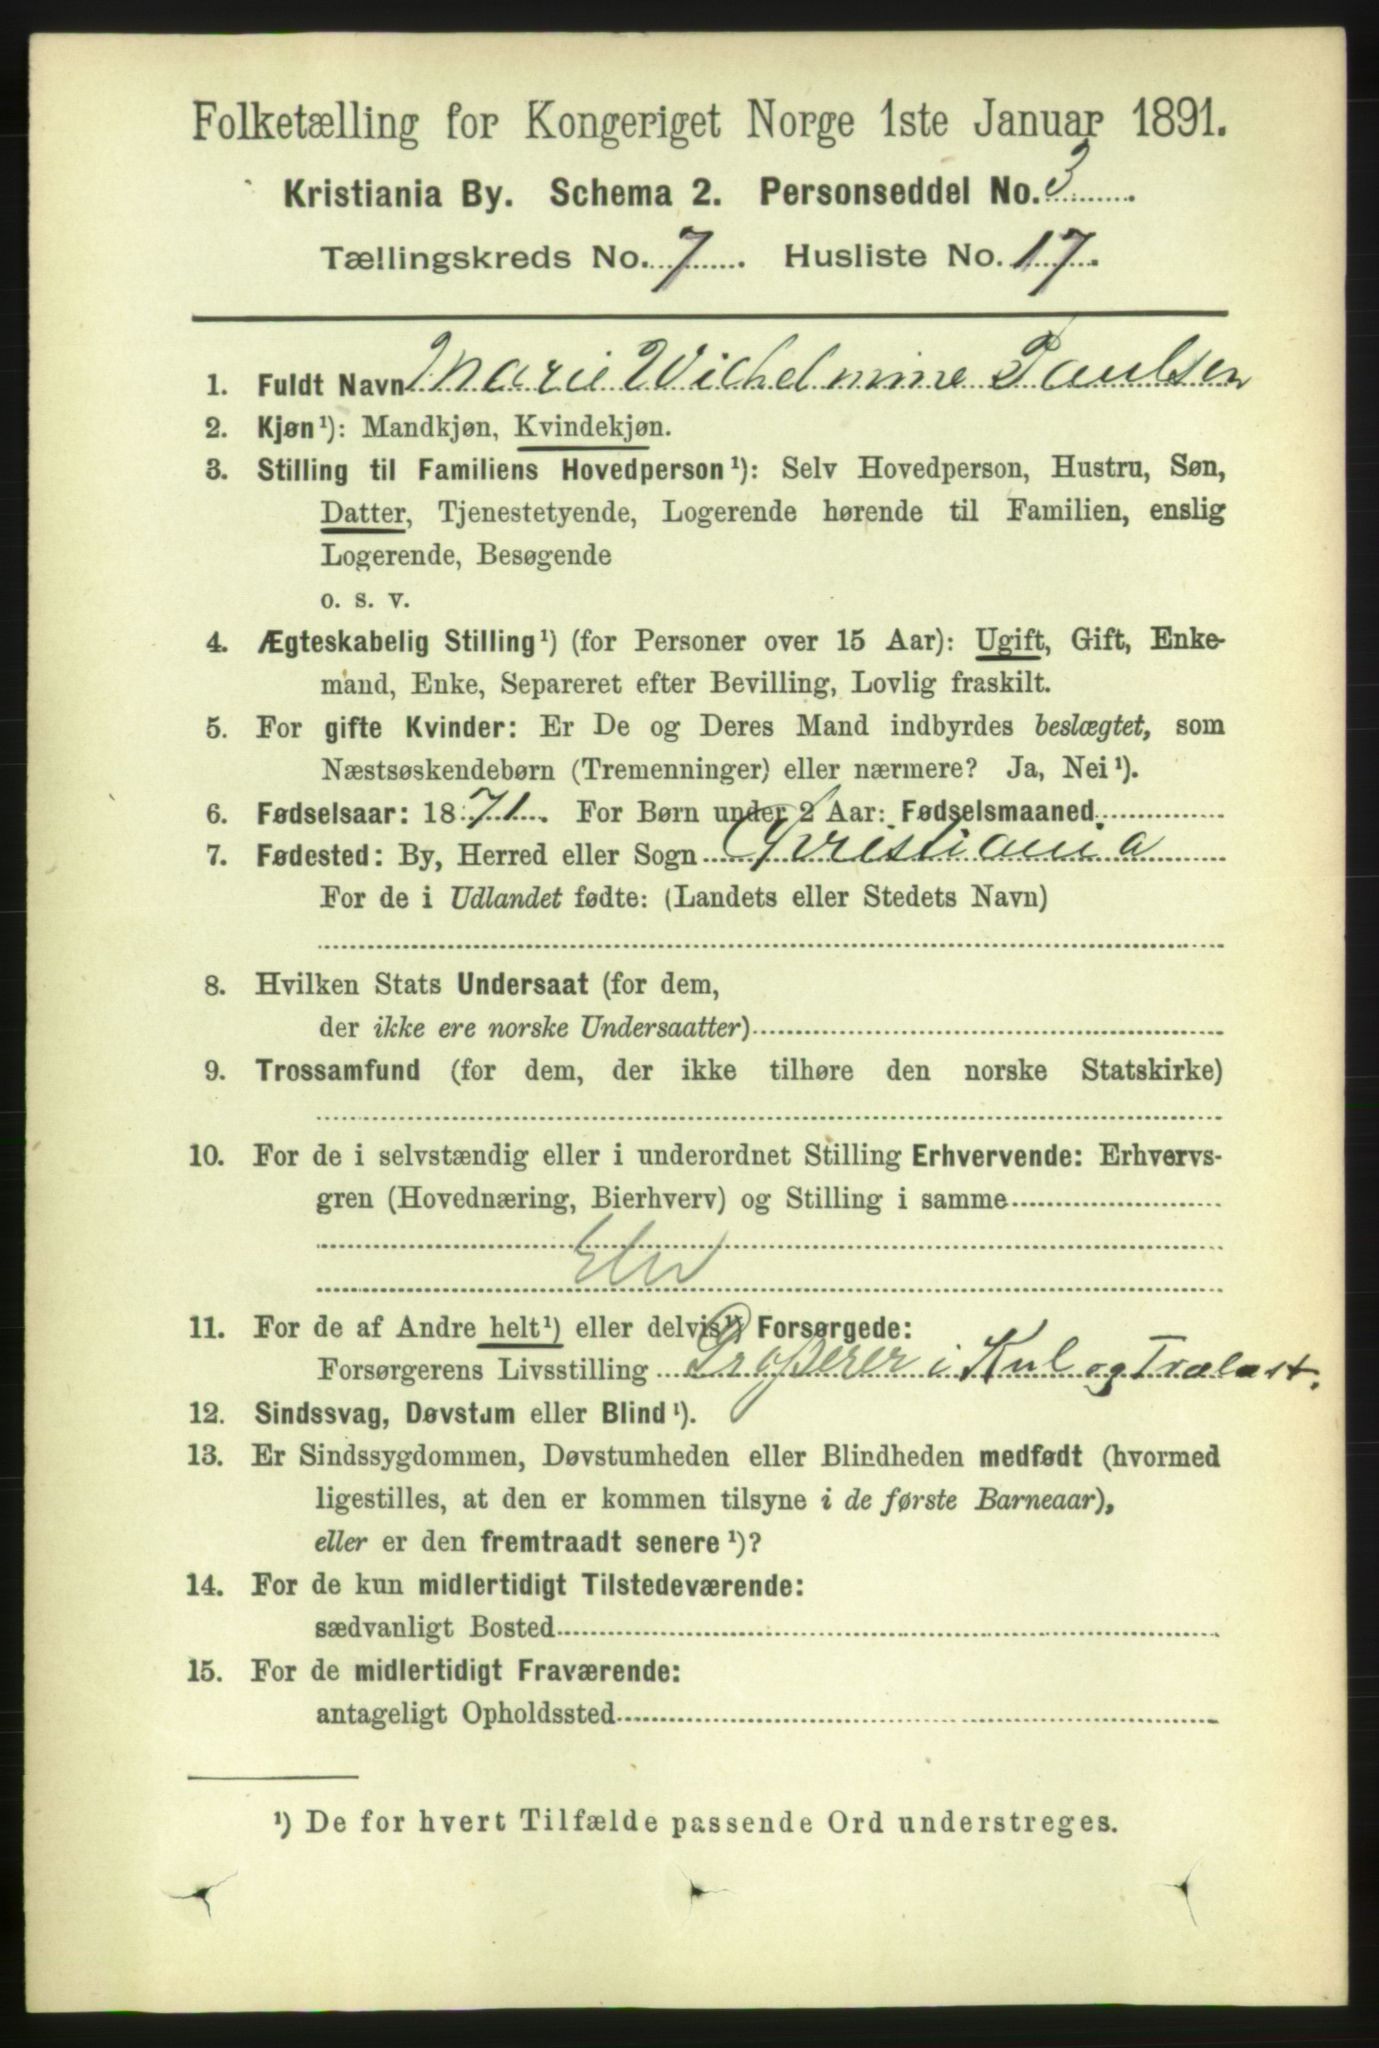 Folketælling for Kongeriget Norge 1ste Januar 1891.
Kristiania By. Schema 2. Personseddel No. 3
Tællingskreds No. 7. Husliste No. 17.
1. Fuldt Navn Marie Wilhelmine Paulsen
2. Kjøn¹): Mandkjøn, Kvindekjøn.
3. Stilling til Familiens Hovedperson¹): Selv Hovedperson, Hustru, Søn,
Datter, Tjenestetyende, Logerende hørende til Familien, enslig
Logerende, Besøgende
o. s. v.
4. Ægteskabelig Stilling¹) (for Personer over 15 Aar): Ugift, Gift, Enke-
mand, Enke, Separeret efter Bevilling, Lovlig fraskilt.
5. For gifte Kvinder: Er De og Deres Mand indbyrdes beslægtet, som
Næstsøskendebørn (Tremenninger) eller nærmere? Ja, Nei¹).
6. Fødselsaar: 1871. For Børn under 2 Aar: Fødselsmaaned
7. Fødested: By, Herred eller Sogn Christiania
For de i Udlandet fødte: (Landets eller Stedets Navn)
8. Hvilken Stats Undersaat (for dem,
der ikke ere norske Undersaatter)
9. Trossamfund (for dem, der ikke tilhøre den norske Statskirke)
10. For de i selvstændig eller i underordnet Stilling Erhvervende: Erhvervs-
gren (Hovednæring, Bierhverv) og Stilling i samme
Elev
11. For de af Andre helt¹) eller delvis¹) Forsørgede:
Forsørgerens Livsstilling Grosserer i Kul og Trælast.
12. Sindssvag, Døvstum eller Blind¹).
13. Er Sindssygdommen, Døvstumheden eller Blindheden medfødt (hvormed
ligestilles, at den er kommen tilsyne i de første Barneaar),
eller er den fremtraadt senere¹)?
14. For de kun midlertidigt Tilstedeværende:
sædvanligt Bosted
15. For de midlertidigt Fraværende:
antageligt Opholdssted
¹) De for hvert Tilfælde passende Ord understreges.